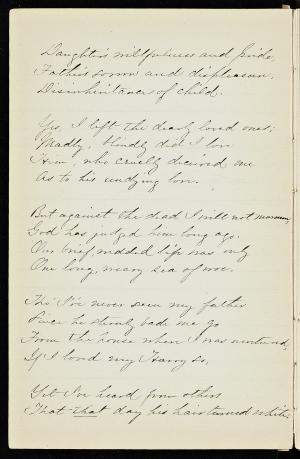 Daughter's willfulness and pride,
Father's sorrow and displeasure,
Disinheritance of child.
Yes, I left the dearly loved ones;
Madly, blindly did I love
Him, who cruelly deceived me
As to his undying love.
But against the dead I will not murmur,
God has judged him long ago.
Our brief, wedded life was only
One long, weary sea of woe.
Tho' I've never seen my father
Since he sternly bade me go
From the house when I was
If I loved my Harry so,
Yet I've heard from others
That that day his hair turned white